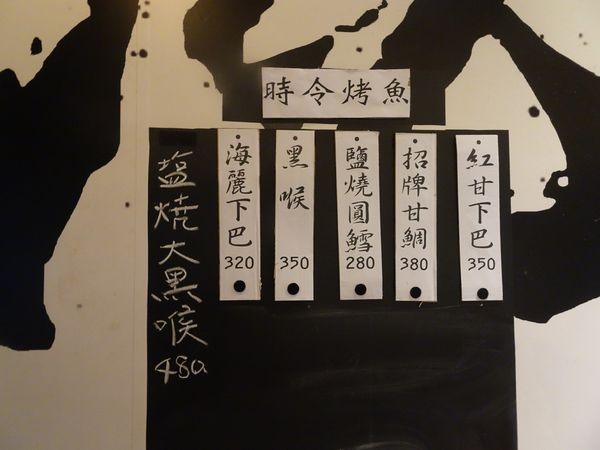 時令烤魚
紅甘下巴
350
招牌甘鯛
380
鹽燒圓鱈
280
黑喉
350
海麗下巴
320
塩燒大黑喉
480